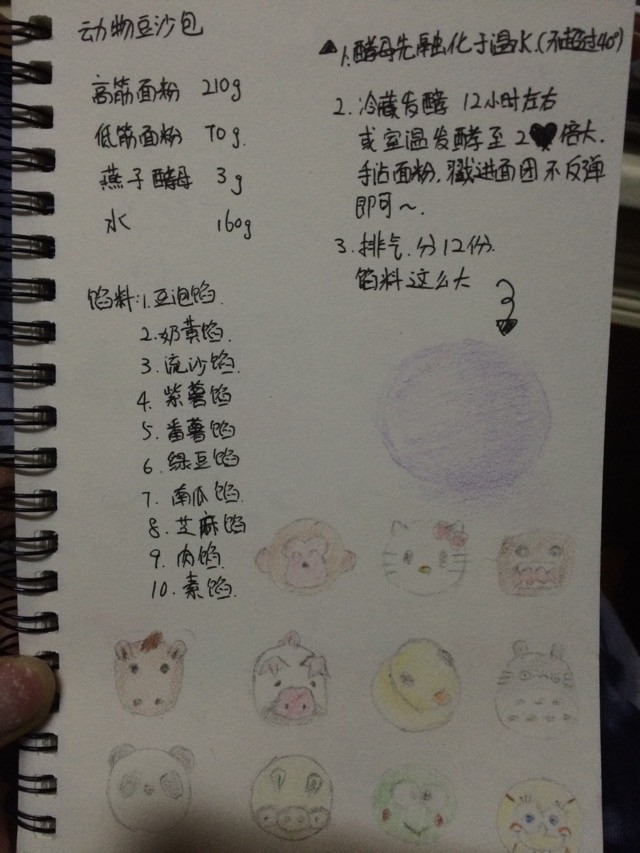 动物豆沙包
高筋面粉 210g
低筋面粉 70g.
燕子酵母 3g
水 160g
馅料:1.豆泡馅.
2.奶黄馅.
3.流沙馅.
4.紫薯馅
5.番薯馅
6.绿豆馅
7.南瓜馅.
8.芝麻馅
9.肉馅.
10.素馅.
▲1.酵母先融化于温水.(不超过40°)
2.冷藏发酵 12小时左右
或室温发酵至 2 倍大.
手沾面粉.戳进面团不反弹
即可~.
3.排气.分12份.
馅料这么大